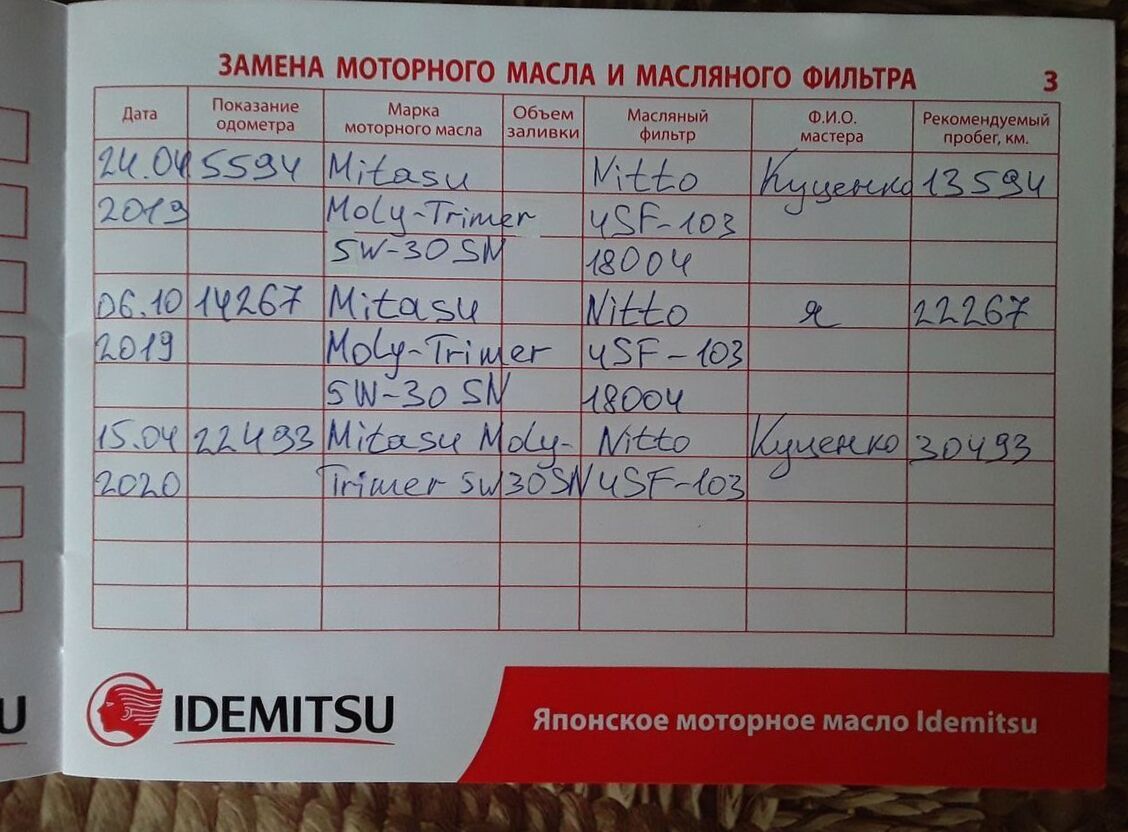 ЗАМЕНА МОТОРНОГО МАСЛА И МАСЛЯНОГО ФИЛЬТРА 3
Дата Показание одометра Марка моторного масла Объем заливки Масляный фильтр Ф.И.О. мастера Рекомендуемый пробег, км.
24.04 5594 Mitasu Nitto Куценко 13594
2019 Moly-Trimer 4SF-103
5W-30 SN 18004
06.10 14267 Mitasu Nitto я 22267
2019 Moly-Trimer 4SF-103
5W-30 SN 18004
15.04 22493 Mitasu Moly- Nitto Куценко 30493
2020 Trimer 5W30SN 4SF-103
U IDEMITSU Японское моторное масло Idemitsu